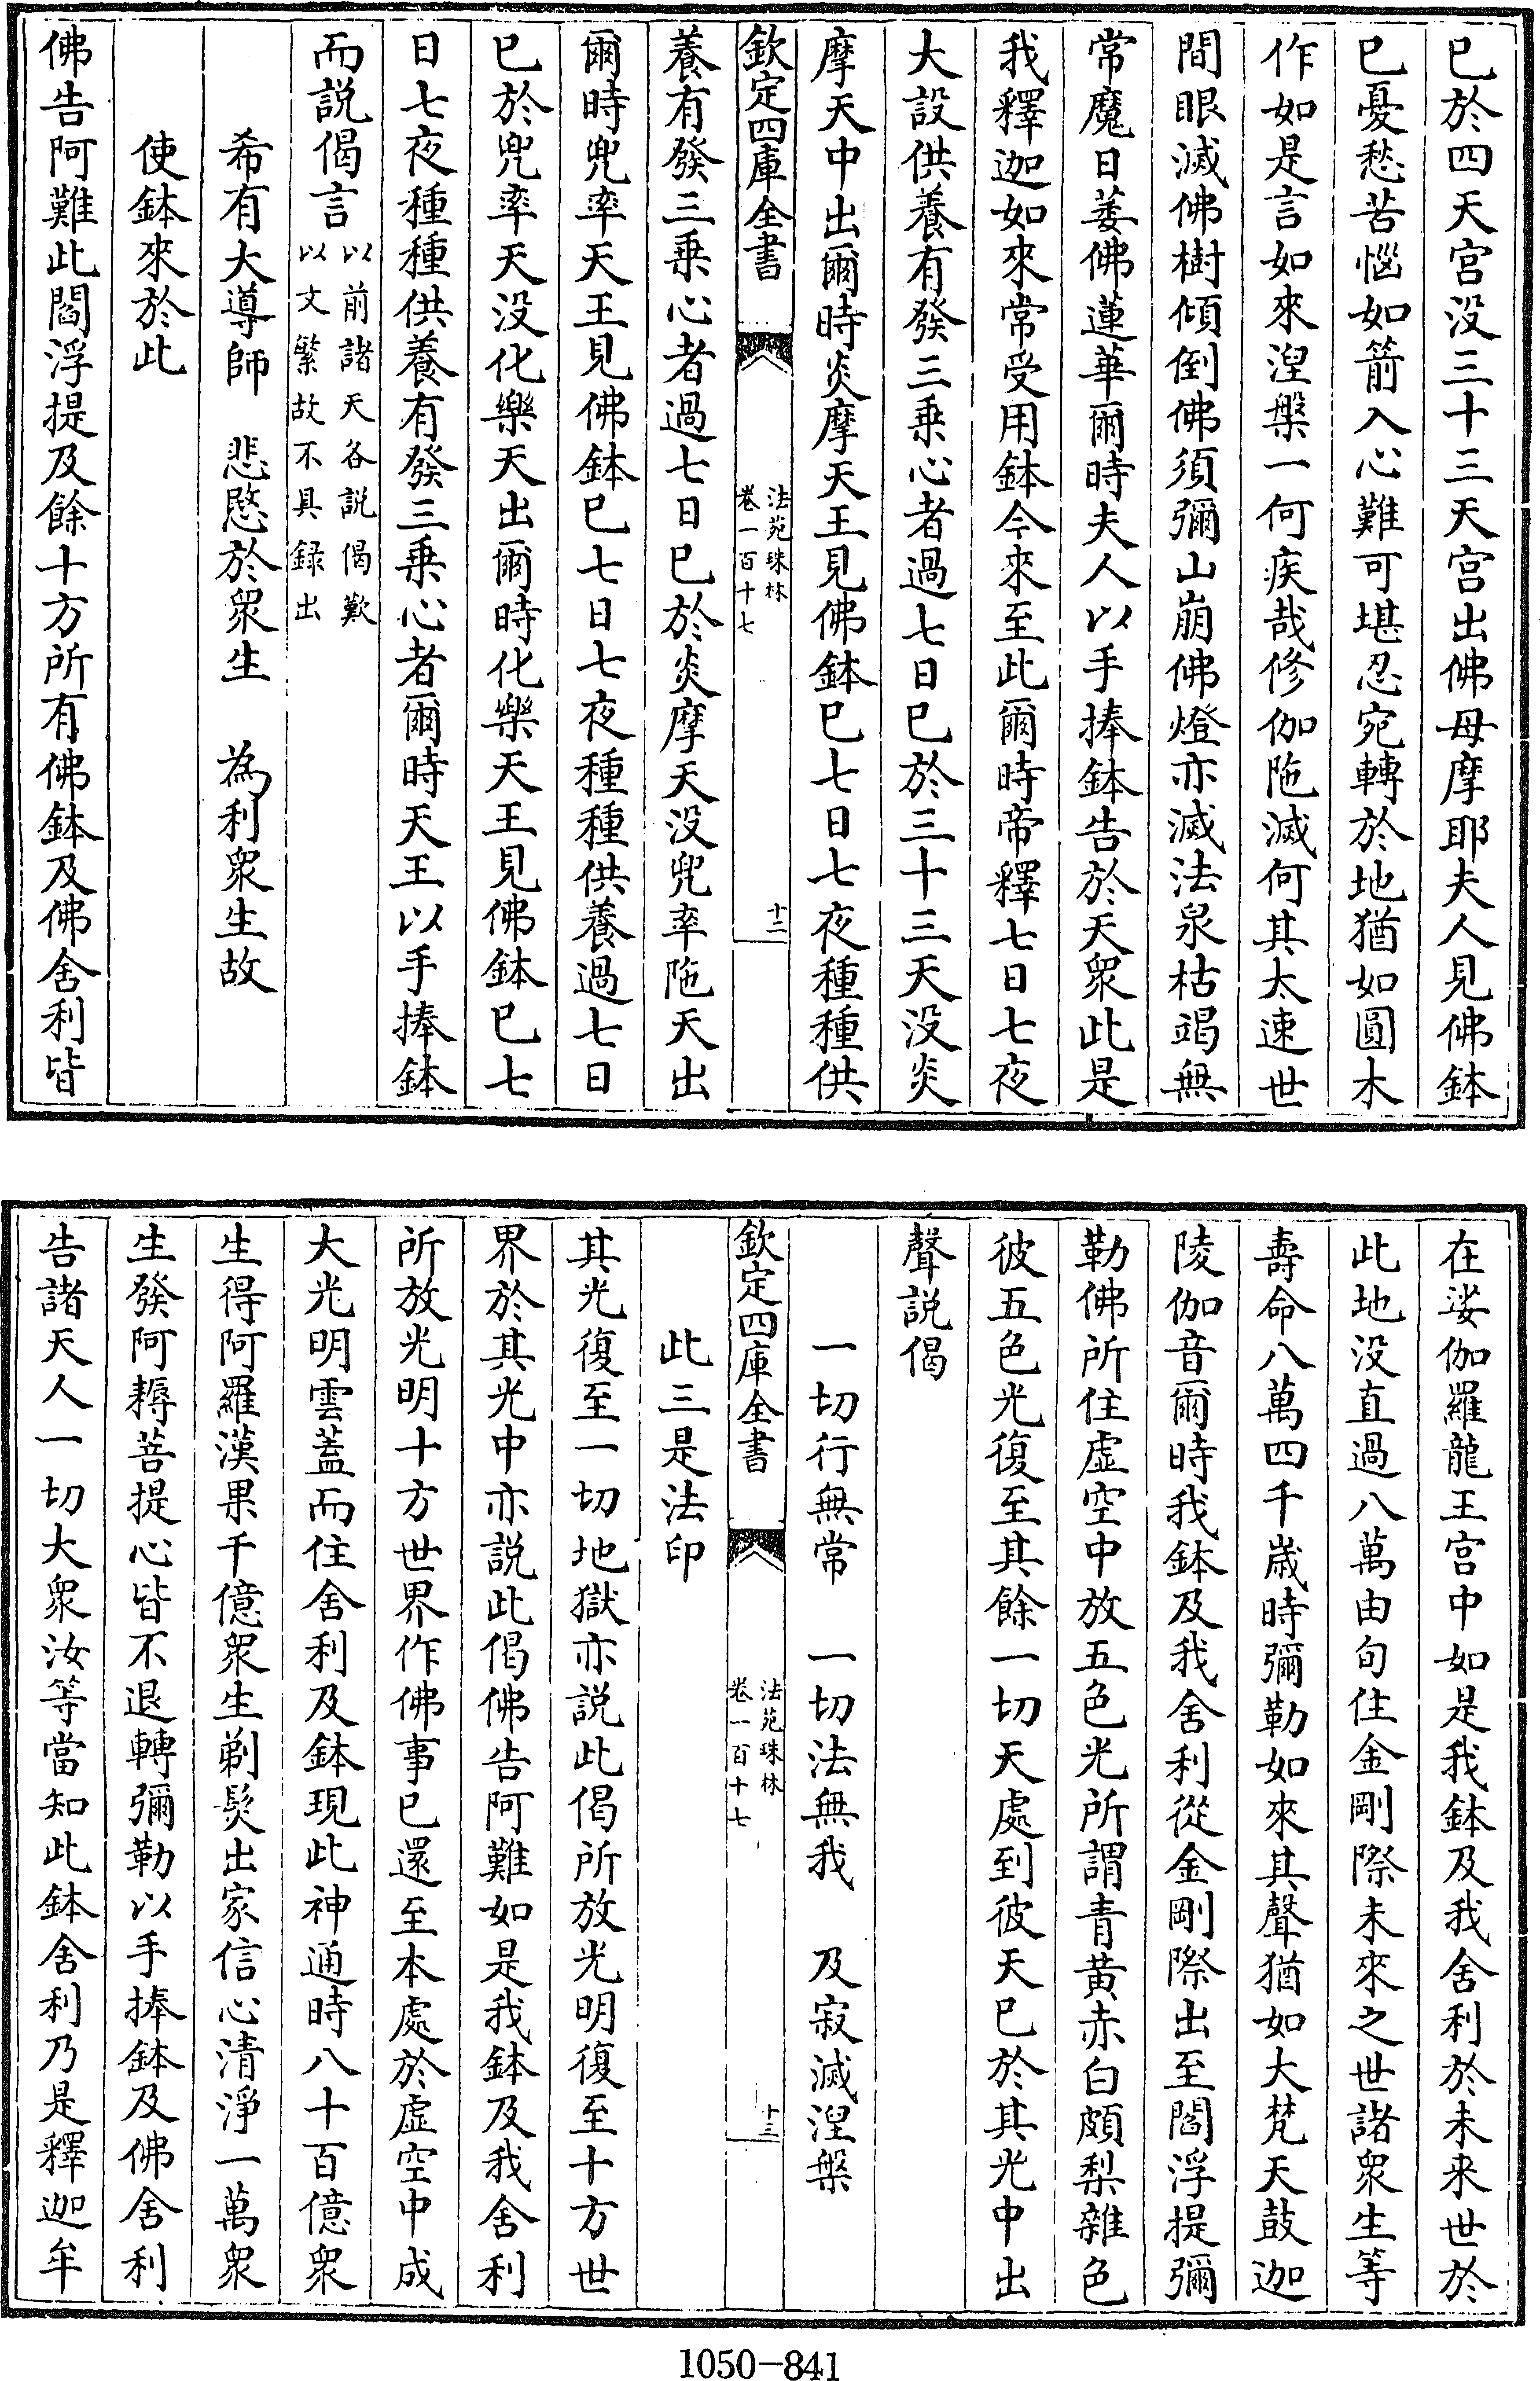 已於四天宫没三十三天宫出佛母摩耶夫人見佛鉢
已憂愁苦惱如箭入心難可堪忍宛轉於地猶如圓木
作如是言如來涅槃一何疾哉修伽陁滅何其太速世
間眼滅佛樹傾倒佛須彌山崩佛燈亦滅法泉枯竭無
常魔日萎佛蓮華爾時夫人以手捧鉢告於天衆此是
我釋迦如來常受用鉢今來至此爾時帝釋七日七夜
大設供養有發三乗心者過七日已於三十三天没炎
摩天中出爾時炎摩天王見佛鉢已七日七夜種種供
欽定四庫全書
法苑珠林
卷一百十七
十二
養有發三乗心者過七日已於炎摩天没兜率陁天出
爾時兜率天王見佛鉢已七日七夜種種供養過七日
已於兜率天没化樂天出爾時化樂天王見佛鉢已七
日七夜種種供養有發三乗心者爾時天王以手捧鉢
而説偈言以前諸天各説偈歎
以文繁故不具録出
希有大導師 悲愍於衆生 為利衆生故
使鉢來於此
佛告阿難此閻浮提及餘十方所有佛鉢及佛舍利皆
在娑伽羅龍王宫中如是我鉢及我舍利於未来世於
此地没直過八萬由旬住金剛際未來之世諸衆生等
壽命八萬四千歳時彌勒如來其聲猶如大梵天鼓迦
陵伽音爾時我鉢及我舍利從金剛際出至閻浮提彌
勒佛所住虚空中放五色光所謂青黄赤白頗梨雜色
彼五色光復至其餘一切天處到彼天已於其光中出
聲説偈
一切行無常 一切法無我 及寂滅涅槃
欽定四庫全書
法苑珠林
卷一百十七
十三
此三是法印
其光復至一切地獄亦説此偈所放光明復至十方世
界於其光中亦説此偈佛告阿難如是我鉢及我舍利
所放光明十方世界作佛事已還至本處於虚空中成
大光明雲蓋而住舍利及鉢現此神通時八十百億衆
生得阿羅漢果千億衆生剃髮出家信心清淨一萬衆
生發阿耨菩提心皆不退轉彌勒以手捧鉢及佛舍利
告諸天人一切大衆汝等當知此鉢舍利乃是釋迦牟
1050-841